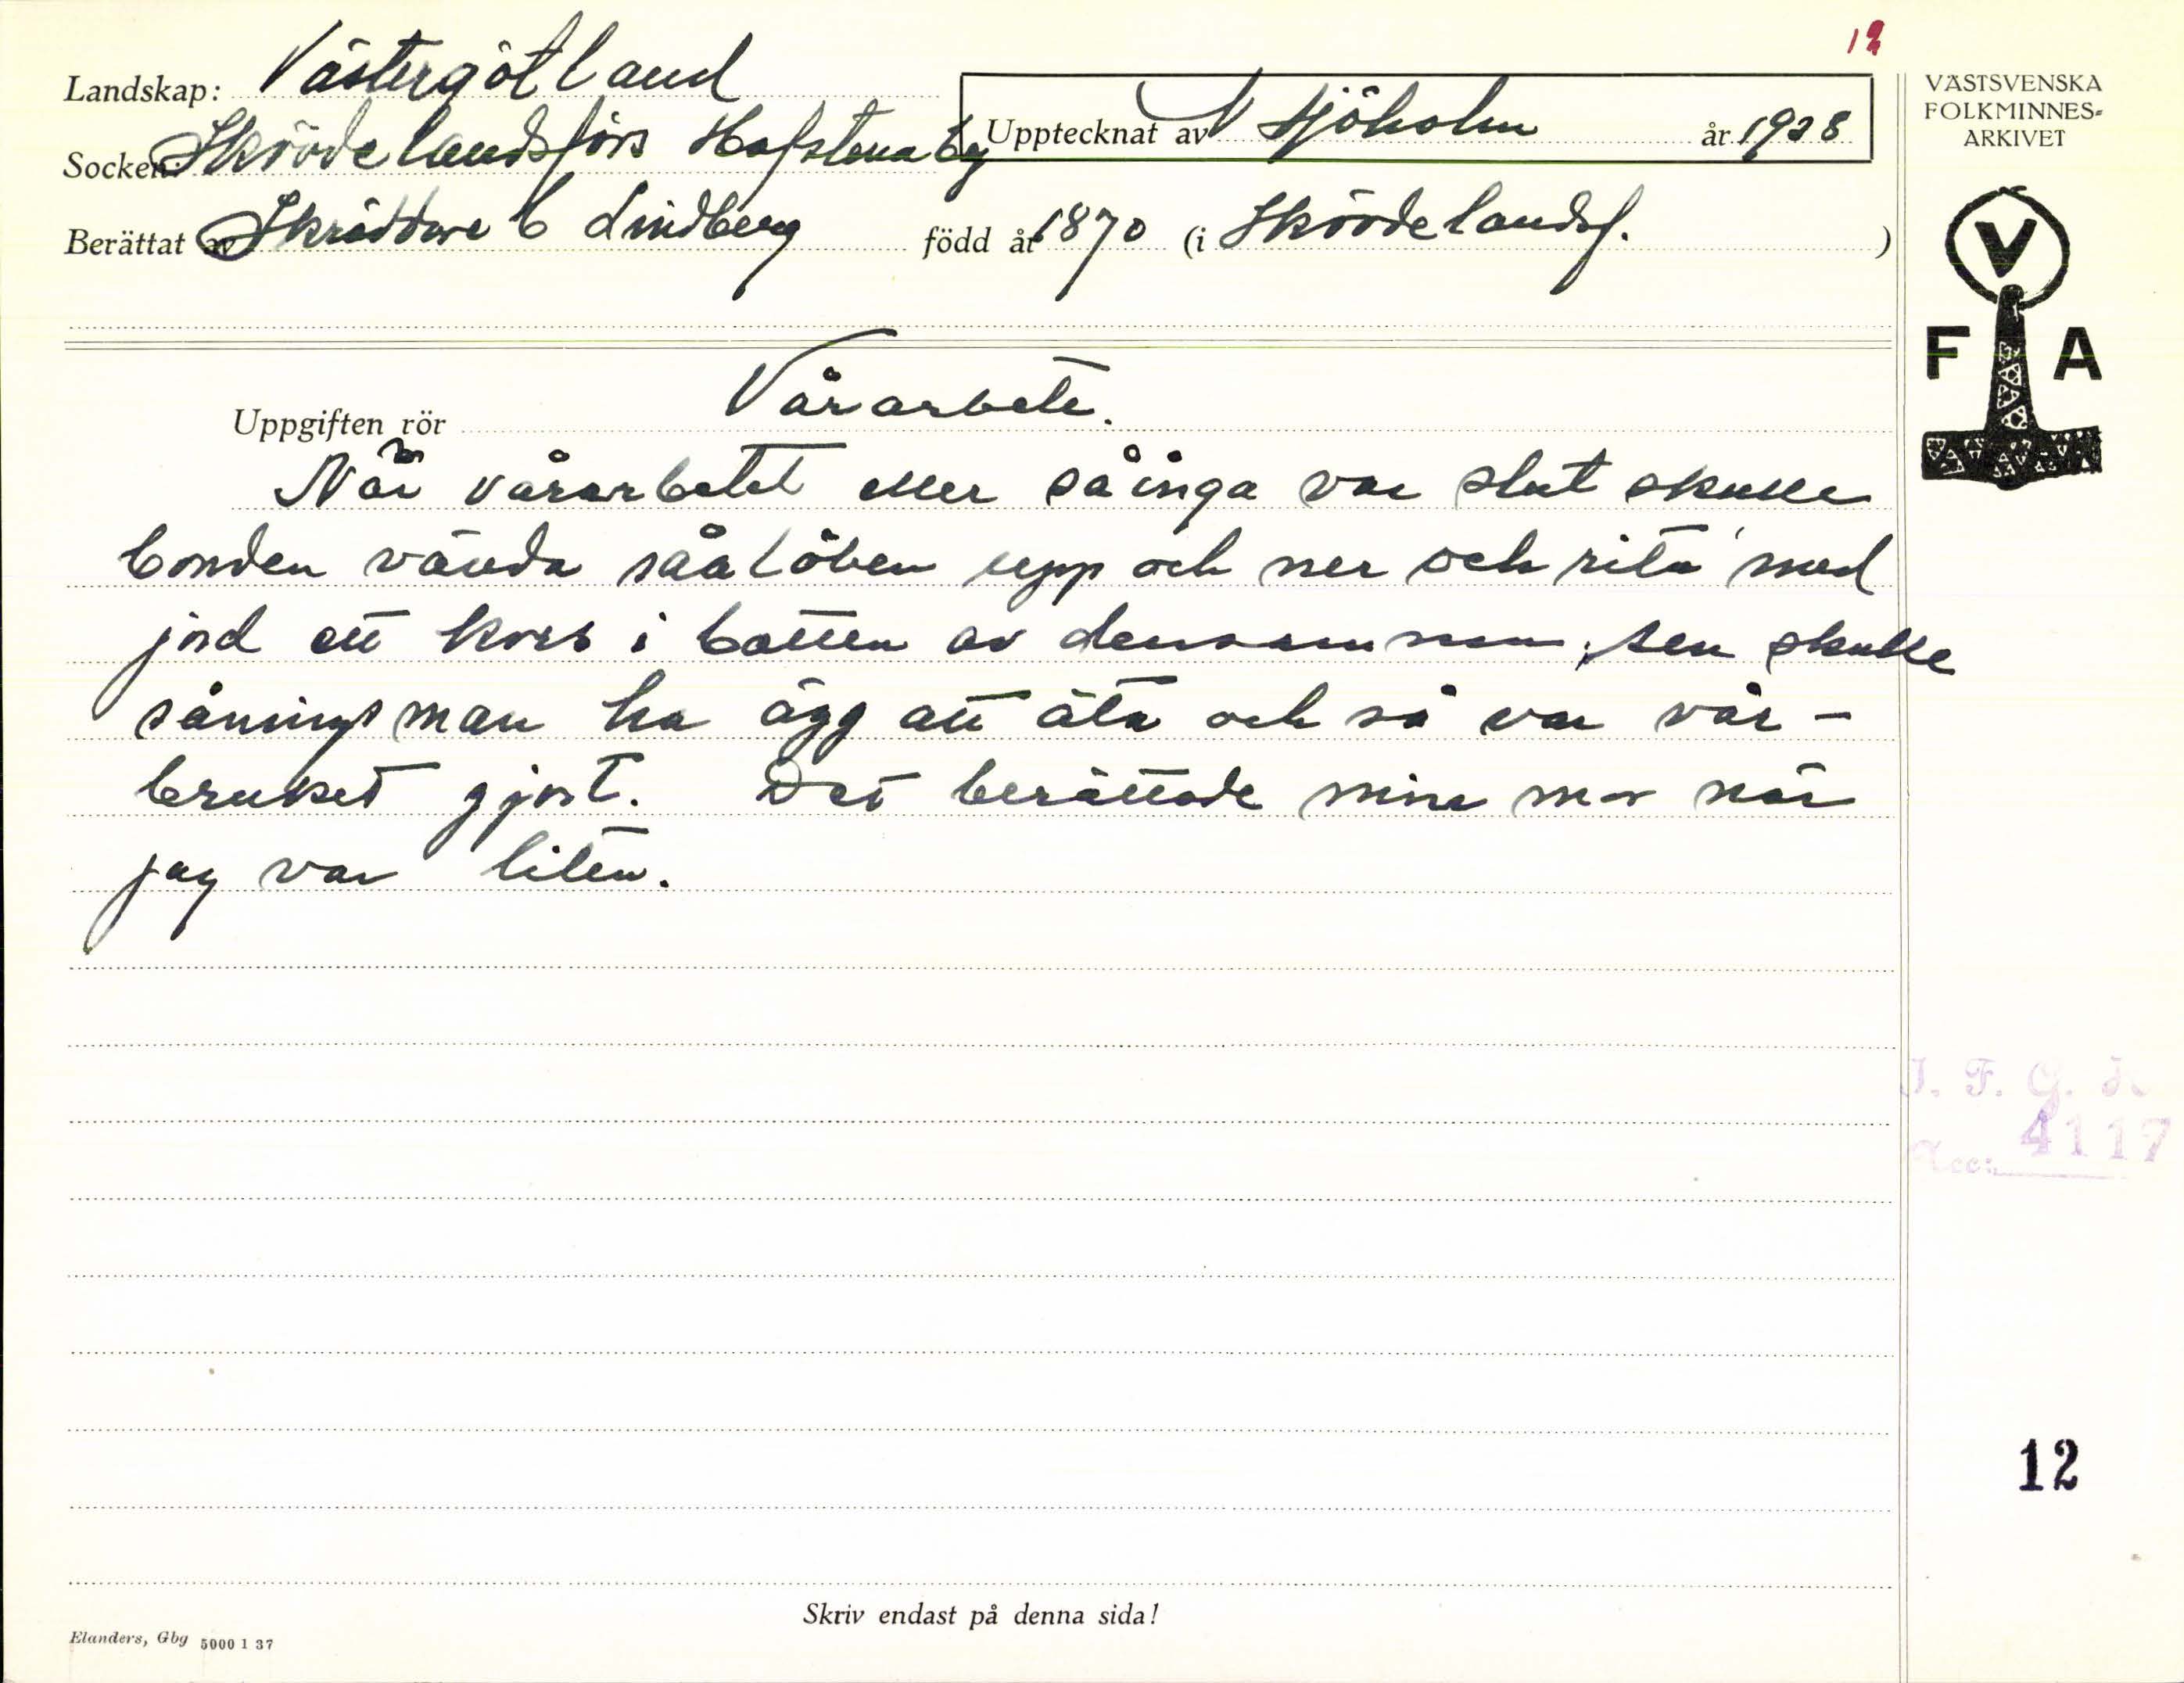 12
Landskap: Västergötland
Upptecknat av N Sjöholm år 1938
Socken: Skövde landsförs Hofstena by
Berättat av Skräddare C Lindberg född år 1870 (i Skövde landsf. )
VÄSTSVENSKA
FOLKMINNES-
ARKIVET
V
F A
Uppgiften rör Vårarbete.
När vårarbetet eller såinga var slut skulle
bonden vända såalöben upp och ner och rita med
jord ett kors i botten av densamma, sen skulle
såningsman ha ägg att äta och så var vår-
bruket gjort. Det berättade mina mor när
jag var liten.
I. F. G. H.
Acc: 4117
12
Skriv endast på denna sida!
Elanders, Gbg 5000 1 37